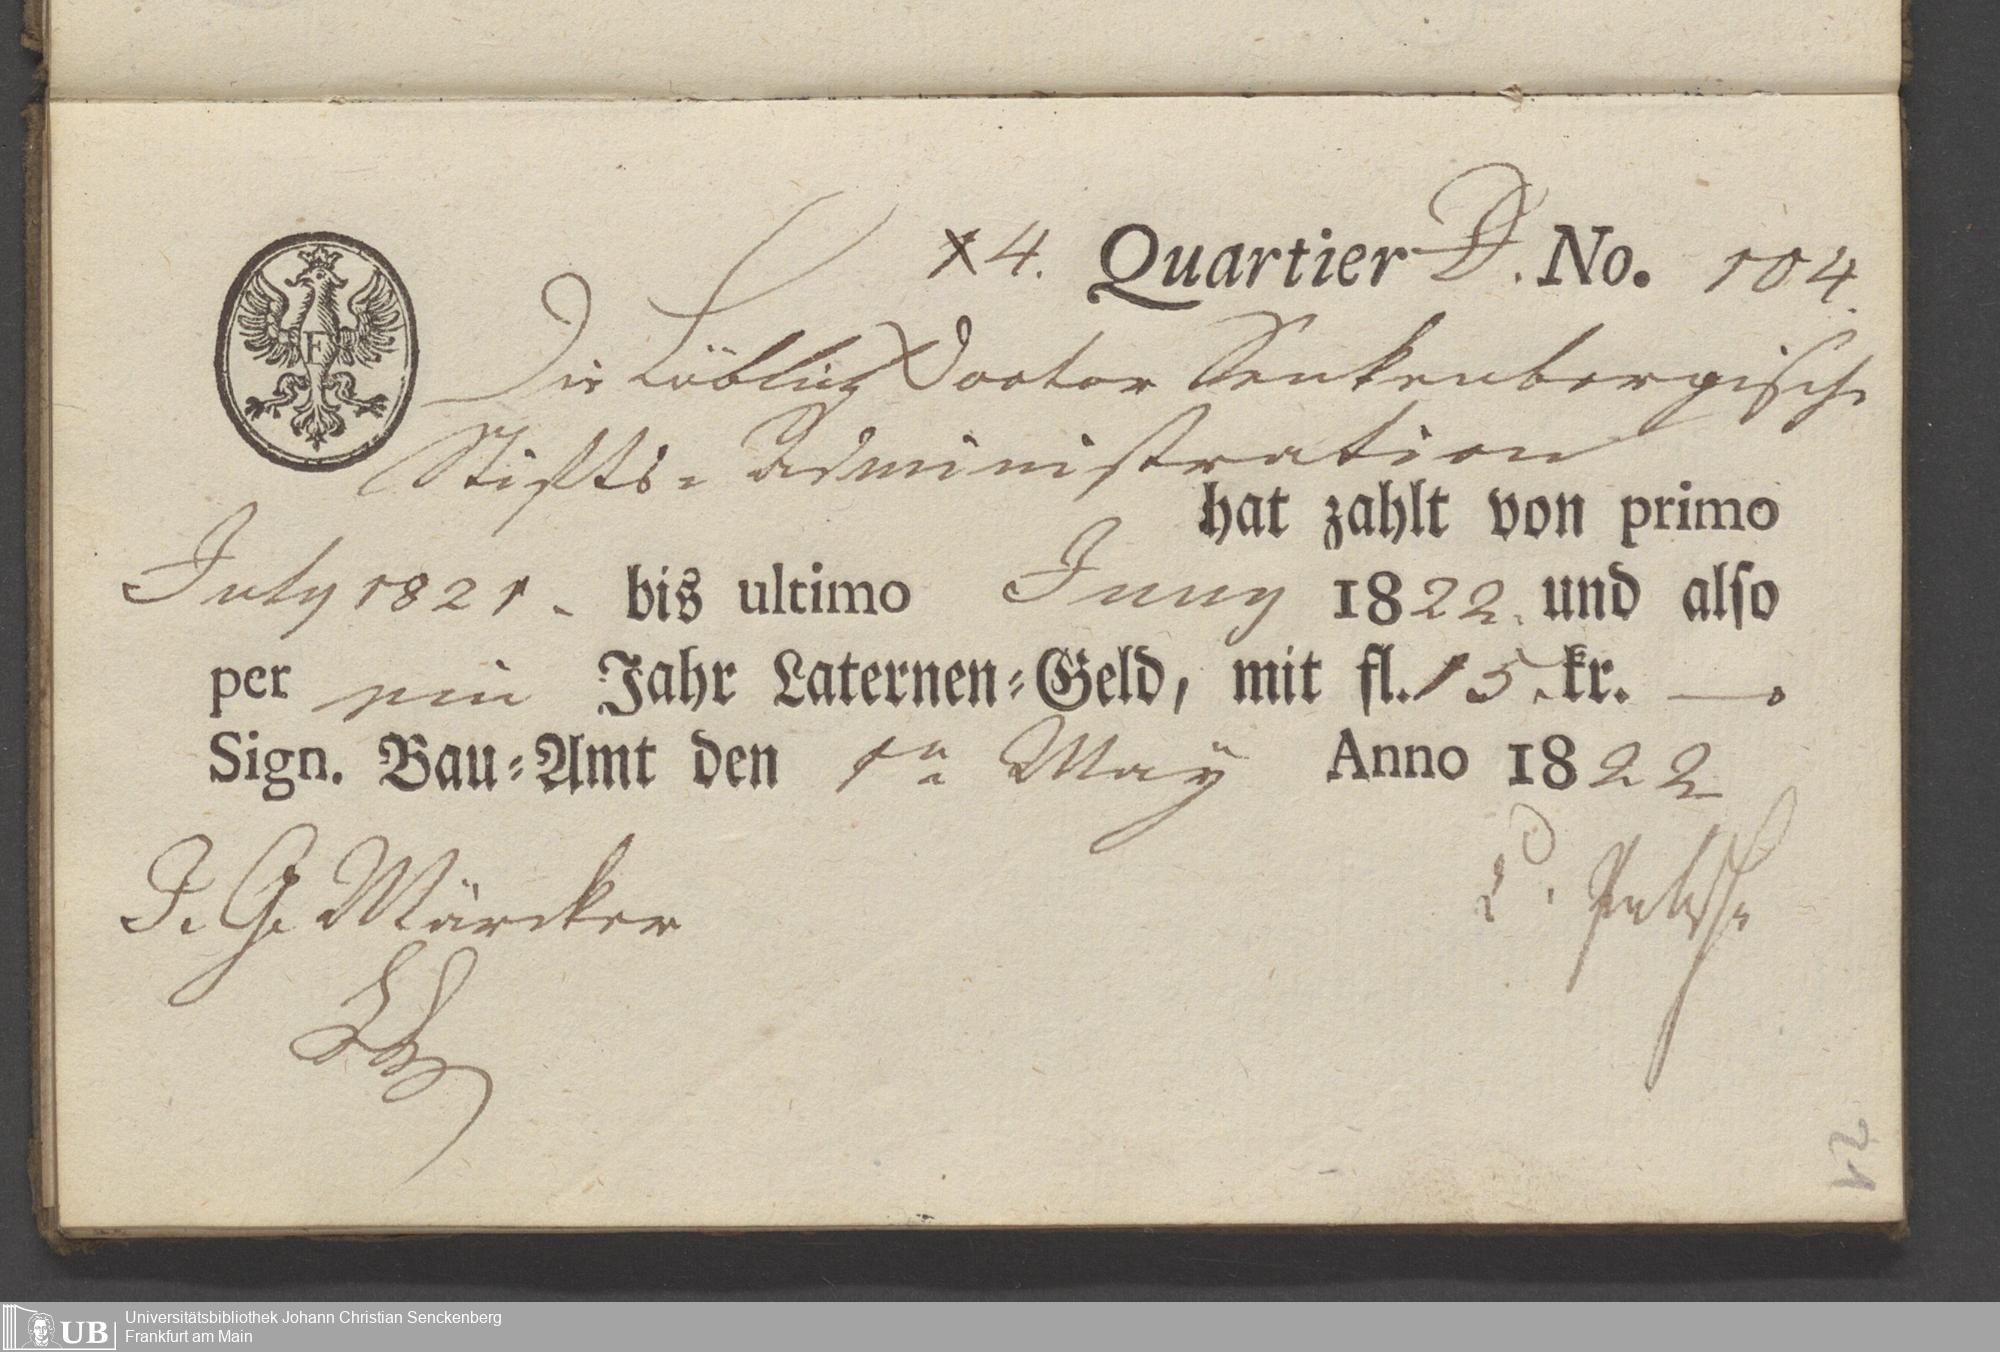 x 4. Quartier D. No. 104.
F
Die Löblich Doctor Senkenbergische
Stifts-Administration
hat zahlt von primo
July 1821. bis ultimo Juny 1822. und also
per ein Jahr Laternen-Geld, mit fl. 15. kr. —
Sign. Bau-Amt den 1n May Anno 1822
J. G. Märcker
UB Universitätsbibliothek Johann Christian Senckenberg
Frankfurt am Main